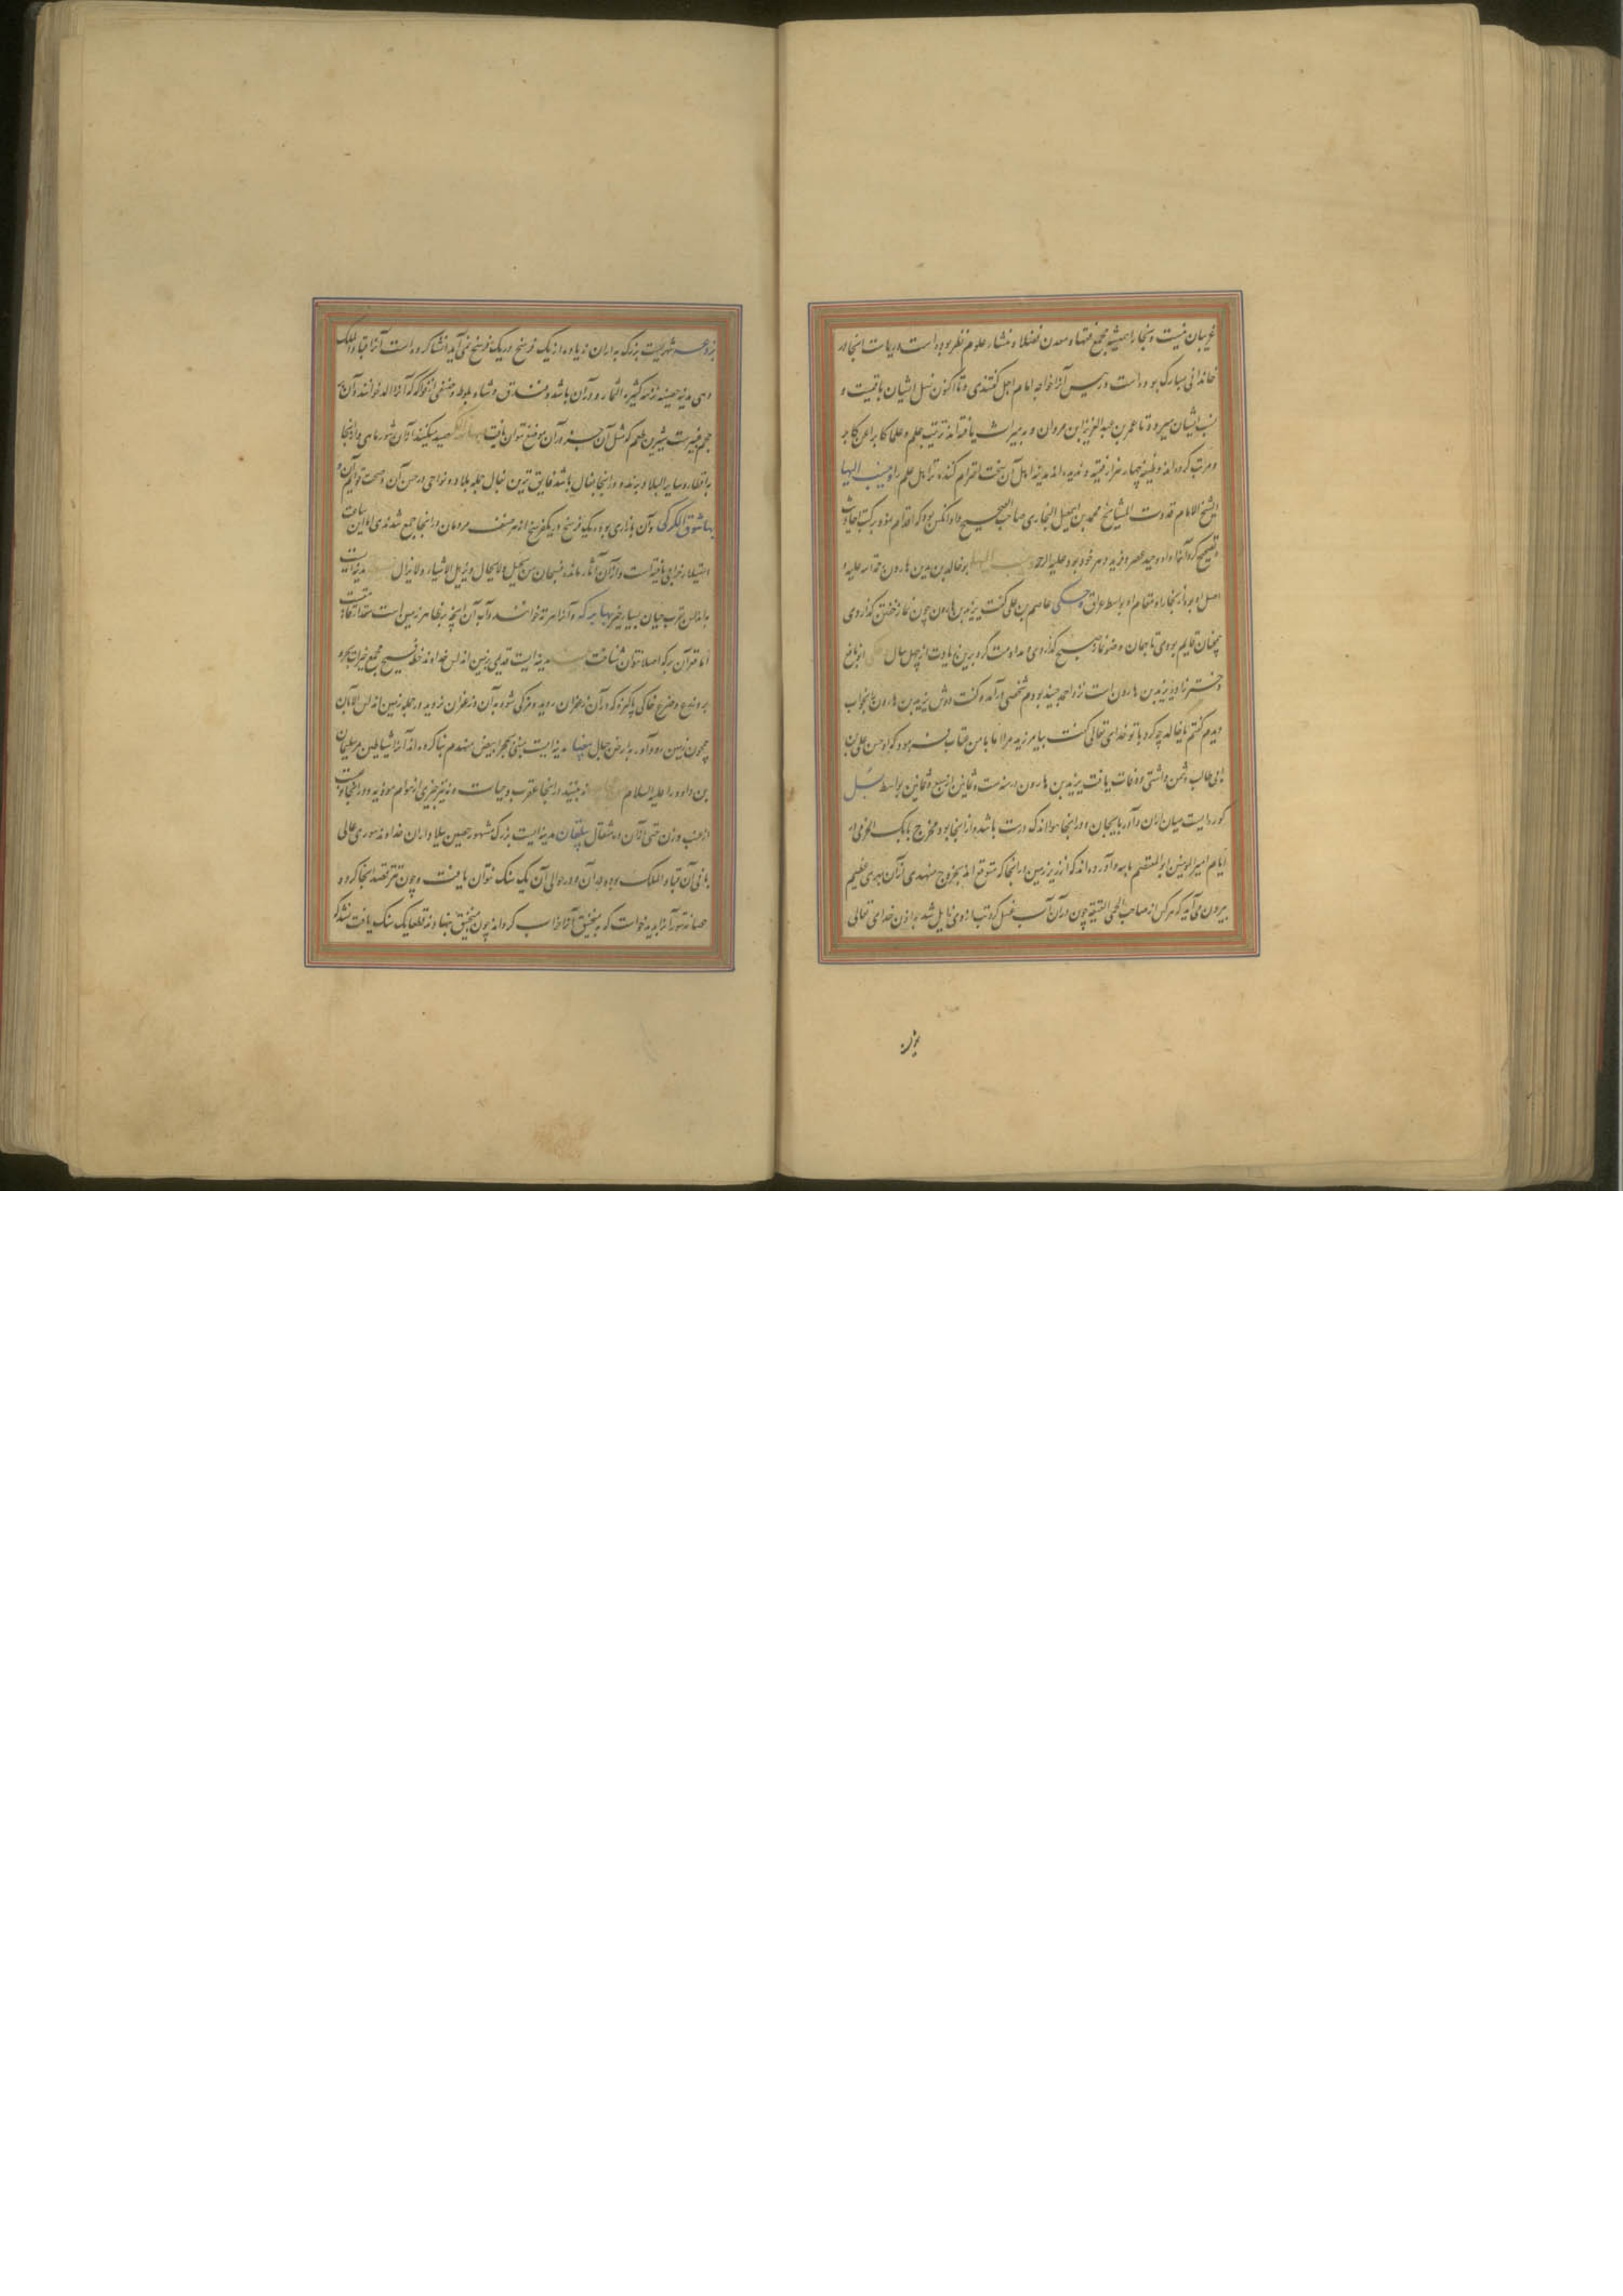 غریبان نیست و بخارا همیشه مجمع فقها و معدن فضلا و منشاء علوم نظر بوده است و ریاست اینجا در
خاندانی مبارک بوده است و رئیس آنرا خواجه امام اجل گفتندی و تا اکنون نسل ایشان باقیست و
نسب ایشان میرود تا عمر بن عبد العزیز ابن مروان و به میراث یافته اند تربیت علم و علما کابرا عن کابر
و مرتب کرده اند وظیفه چهار هزار فقیه و ندیده اند مدینه اهل آن سخت احترام کننده تر اهل علم را و ینسب الیها
الشیخ الامام قدوت المشایخ محمد بن اسمعیل البخاری صاحب الصحیح و او آنکس بود که اقدام نمود بر کتب احادیث
و تصحیح کرد آنرا و او وحید عصر و فرید دهر خود بود علیه الرحمه و ینسب الیها ابو خالد یزید بن هارون رحمة الله علیه و
اصل او بود از بخارا و مقام او بواسط عراق و حکی عاصم بن علی گفت یزید بن هارون چون نماز خفتن گذاردی
همچنان قایم بودی تا بهمان وضو نماز صبح گذاردی مداومت کرد برین عادت از چهل سال
دختر زاده یزید بن هارون است نزد احمد حنبل بودم شخصی درآمد و گفت دوش یزید بن هارون را بخواب
دیدم گفتم یا خالد چه کرد با تو خدای تعالی گفت بیامرزید مرا اما با من عتاب فرمود که ابو حسن علی بن
ابی طالب دشمن داشتی وفات یافت یزید بن هارون در سنه ست و ثمانین او سبع و ثمانین بواسط
کوره ایست میان اران و آذربایجان و در اینجا مواند که درست باشد و از اینجا بود مخرج بابک الخرمی در
ایام امیر المومنین ابو المعتصم بالله و آورده اند که از زیر زمین در اینجا که متوقع اند بخروج مهدی از آن نهری عظیم
بیرون می آید که هر کس از صاحب الحمی العتیقه چون در آن آب غسل کرد تب از وی زایل شد باذن خدای تعالی
بزدعه
بردعه شهریست بزرگ به اران زیاده از یک فرسخ در یک فرسخ می آید انشا کرده است آنرا قباد الملک
و هی مدینه حصینه نزهه کثیره الثمار و در آن باشد فندق و شاه بلوط و صنفی از فواکه که آنرا الد خوانند و آن
حجم غبیراست شیرین طعم که مثل آن جز در آن موضع نتوان یافت و صید میکنند از آن شورماهی و از اینجا
به اقطار و سایر البلاد برند و در اینجا بغال باشد فایق ترین بغال جمله بلاد و نواحی در حسن آن و صحت قوایم آن و
بها سوق الکرکی و آن بازاری بود در یک فرسخ در یک فرسخ از هر صنف مردمان در اینجا جمع شدندی اما این ساعت
استیلاء خرابی یافته است و از آن آثار مانده فسبحان من یحیل و لا یحال و یزیل الاشیاء و لا یزال مدینه ایست
به اندلس بقرب جیان بسیار خیر بها برکه و آنرا هرته خوانند و آب آن آنچه بظاهر زمین است
اما قرآن برکه اصلا نتوان شناخت مدینه ایست قدیمی بزمین اندلس خداوند خطه فسیح مجمع خیرات بحر و
بر و ضرع خاکی پاکیزه که در آن زعفران روید و مزکی شود به آن و زعفران نروید در جمله زمین اندلس الا بآن
همچون زمین رودآور به ارض جبال بیضا مدینه ایست مبنی بحجر ابیض منهدم بنا کرده اند آنرا شیاطین مر سلیمان
بن داود را علیه السلام ندیده اند در اینجا عقرب و حیات و نه نیز چیزی از هوام موذیه و در اینجا
از عنب وزن حتی از آن ده مثقال بیلقان مدینه ایست بزرگ مشهور حصین ببلاد اران خداوند سوری عالی
بانی آن قباد الملک بوده و در آن و در حوالی آن یک سنگ نتوان یافت و چون تتر قصد اینجا کردند
حصانت سور آنرا بدید خواست که به منجنیق آنرا خراب گرداند چون منجنیق بنهادند قطعا یک سنگ یافت نشد که